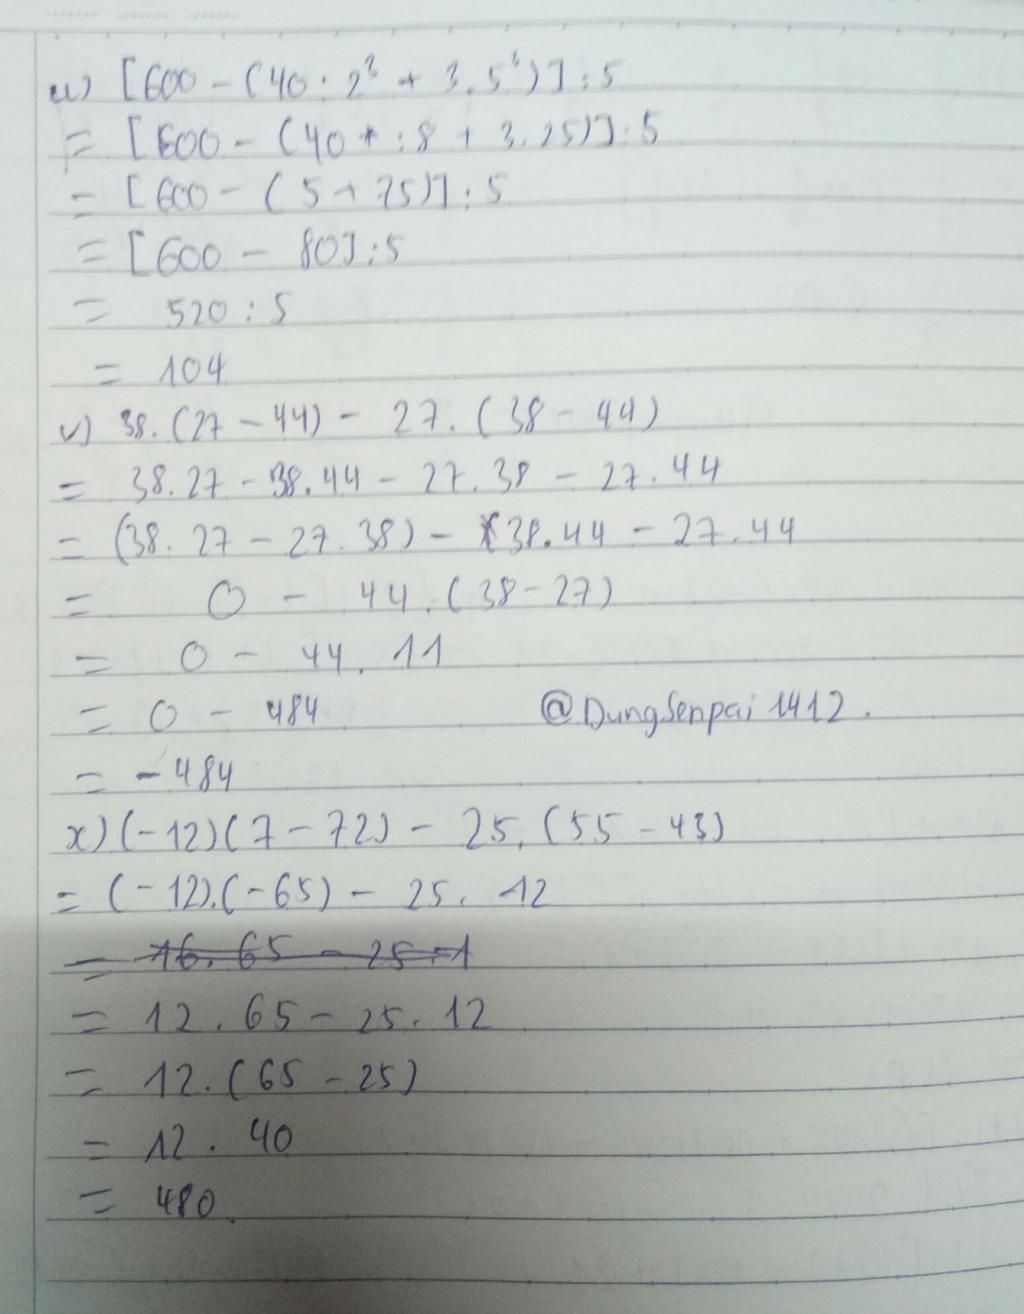 u) [600 - (40 : 2³ + 3.5³)] : 5
= [600 - (40 : 8 + 3.25)] : 5
= [600 - (5 + 75)] : 5
= [600 - 80] : 5
= 520 : 5
= 104
v) 38.(27 - 44) - 27.(38 - 44)
= 38.27 - 38.44 - 27.38 - 27.44
= (38.27 - 27.38) - 38.44 - 27.44
= 0 - 44.(38 - 27)
= 0 - 44.11
= 0 - 484 @DungSenpai1412.
= -484
x) (-12)(7 - 72) - 25.(55 - 43)
= (-12).(-65) - 25.12
= 16.65 - 25.1
= 12.65 - 25.12
= 12.(65 - 25)
= 12.40
= 480.